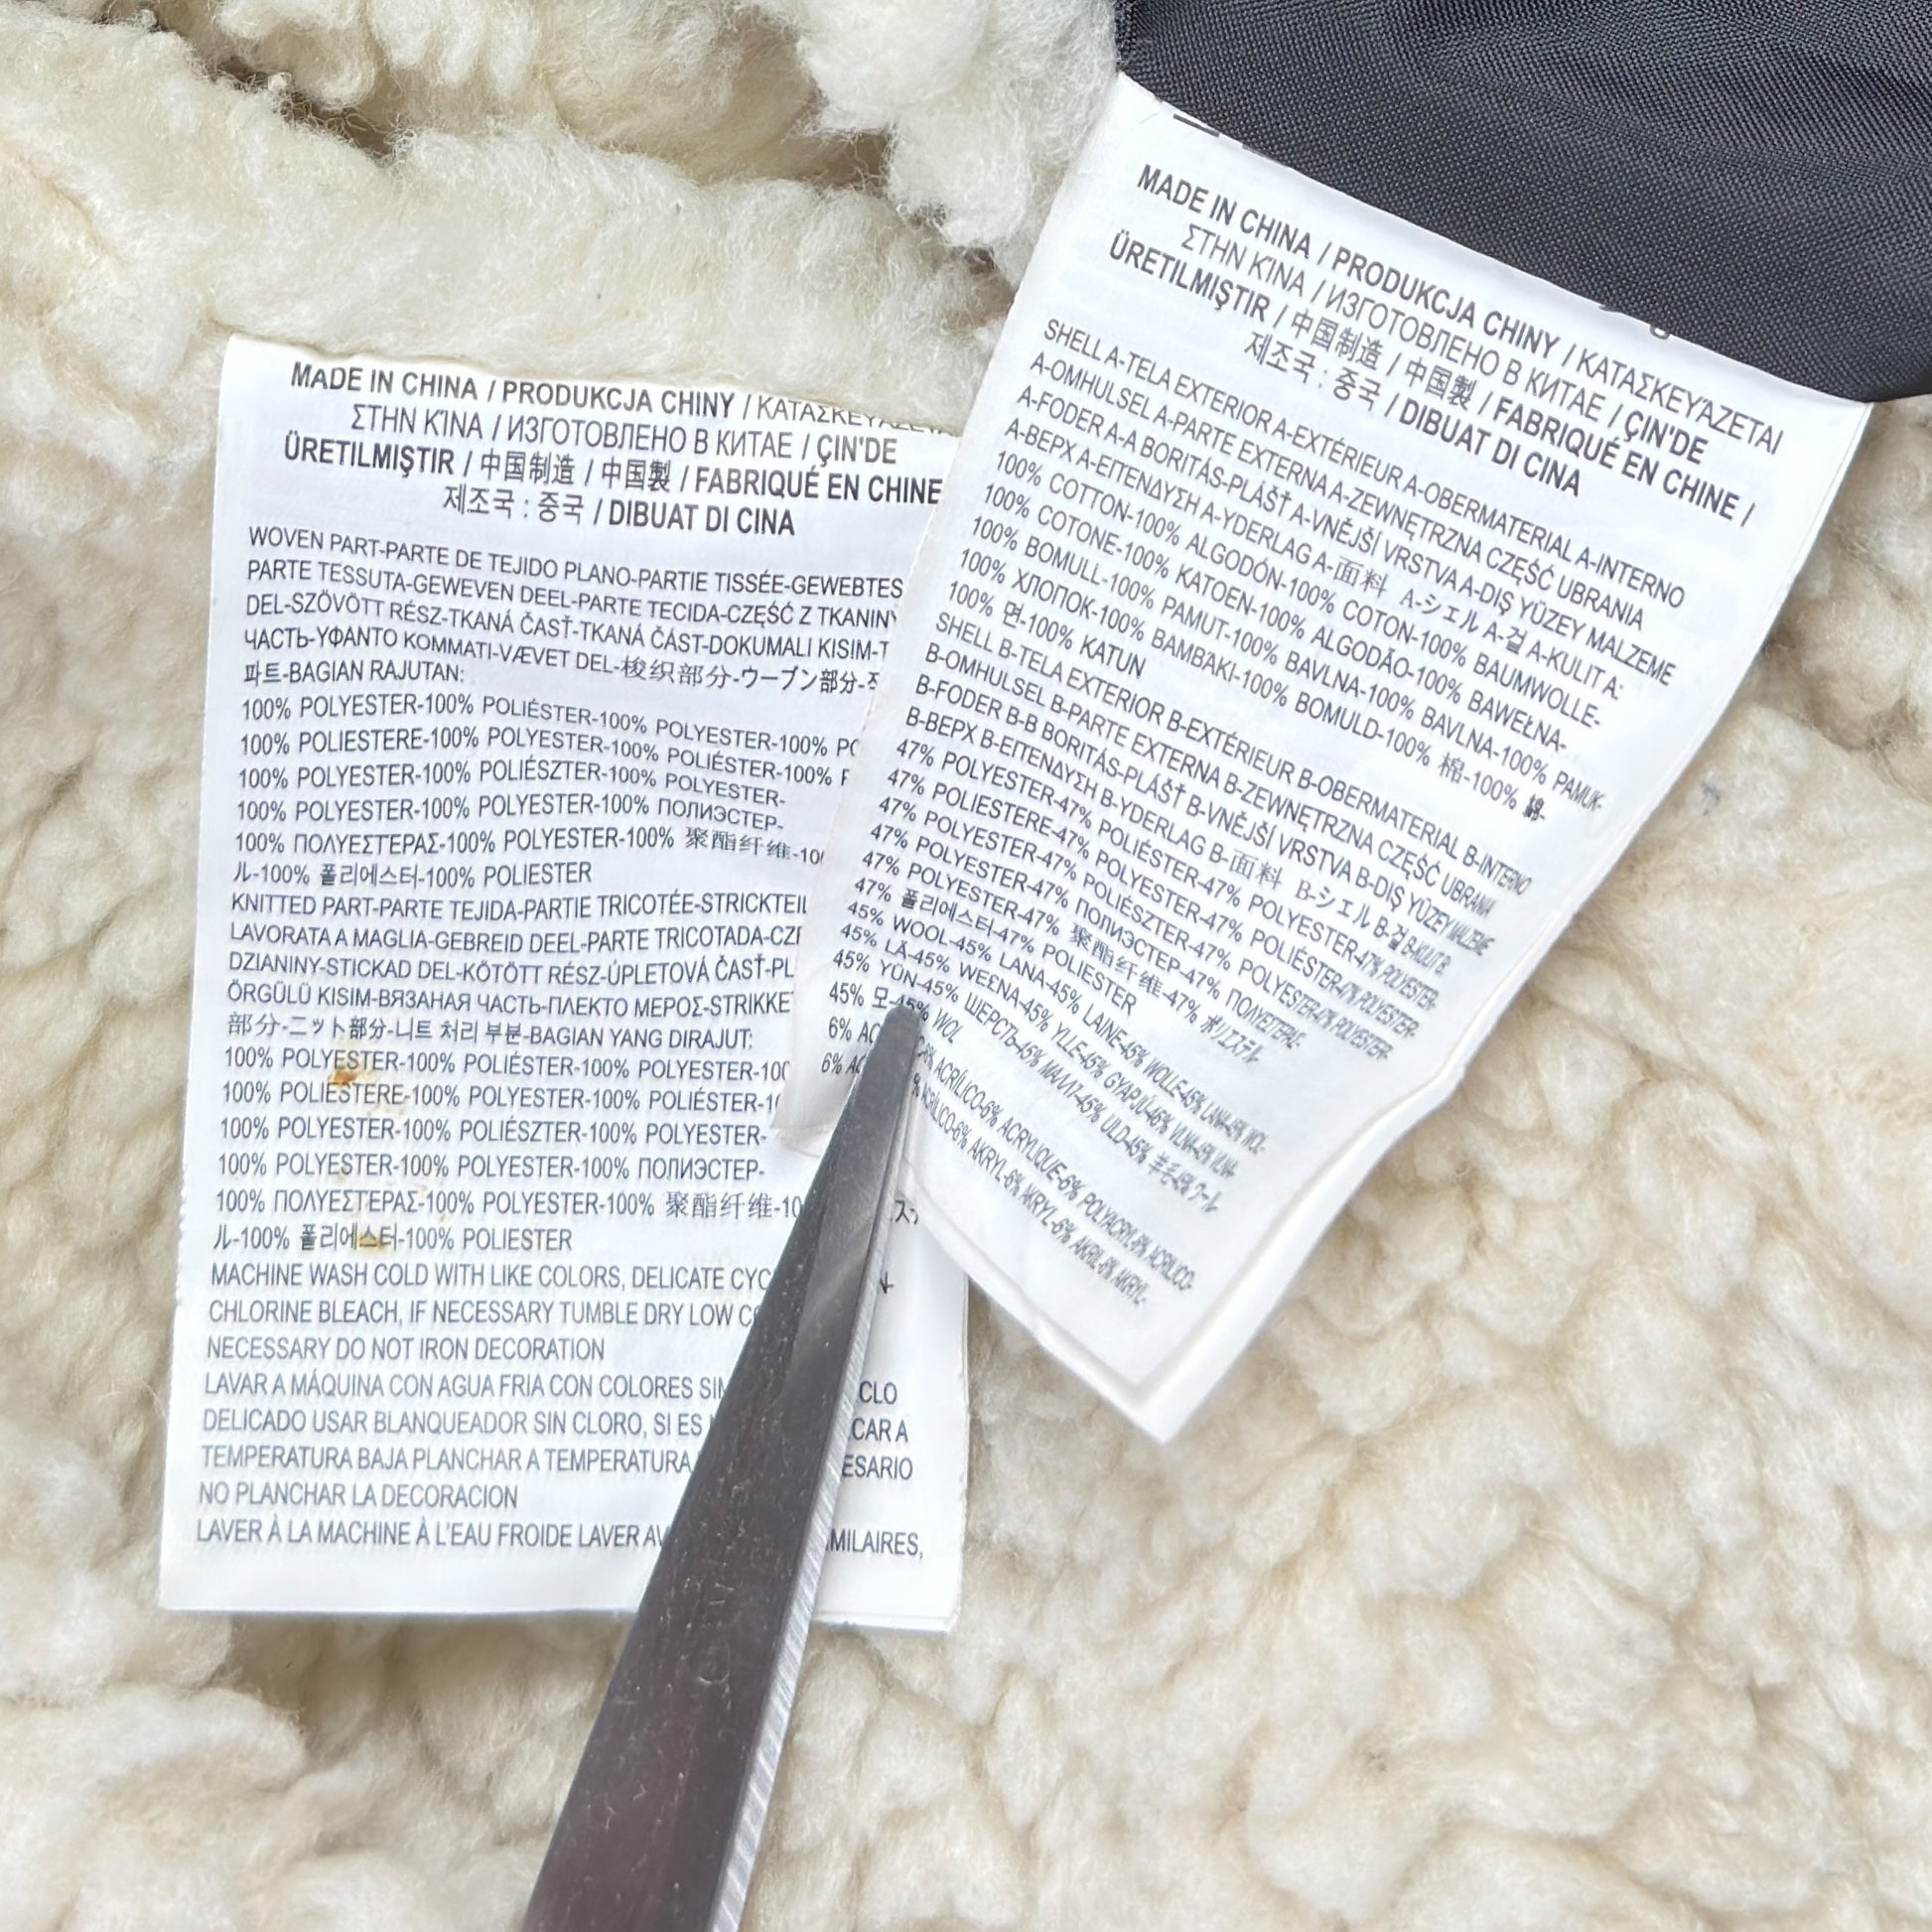 MADE IN CHINA / PRODUKCJA CHINY / ΚΑΤΑΣΚΕΥΆΖΕΤΑΙ
ΣΤΗΝ ΚΊΝΑ / ИЗГОТОВЛЕНО В КИТАЕ / ÇIN'DE
ÜRETILMIŞTIR / 中国制造 / 中国製 / FABRIQUÉ EN CHINE
제조국 : 중국 / DIBUAT DI CINA
WOVEN PART-PARTE DE TEJIDO PLANO-PARTIE TISSÉE-GEWEBTES
PARTE TESSUTA-GEWEVEN DEEL-PARTE TECIDA-CZĘŚĆ Z TKANINY
DEL-SZÖVÖTT RÉSZ-TKANÁ ČASŤ-TKANÁ ČÁST-DOKUMALI KISIM-T
ЧАСТЬ-ΥΦΑΝΤΟ ΚΟΜΜΑΤΙ-VÆVET DEL-梭织部分-ウーブン部分-직
파트-BAGIAN RAJUTAN:
100% POLYESTER-100% POLIÉSTER-100% POLYESTER-100%
100% POLIESTERE-100% POLYESTER-100% POLIÉSTER-100%
100% POLYESTER-100% POLIÉSZTER-100% POLYESTER-
100% POLYESTER-100% POLYESTER-100% ПОЛИЭСТЕР-
100% ΠΟΛΥΕΣΤΕΡΑΣ-100% POLYESTER-100% 聚酯纤维-10
ル-100% 폴리에스터-100% POLIESTER
KNITTED PART-PARTE TEJIDA-PARTIE TRICOTÉE-STRICKTEIL
LAVORATA A MAGLIA-GEBREID DEEL-PARTE TRICOTADA-CZĘ
DZIANINY-STICKAD DEL-KÖTÖTT RÉSZ-ÚPLETOVÁ ČASŤ-PL
ÖRGÜLÜ KISIM-ВЯЗАНАЯ ЧАСТЬ-ΠΛΕΚΤΟ ΜΕΡΟΣ-STRIKKET
部分-ニット部分-니트 처리 부분-BAGIAN YANG DIRAJUT:
100% POLYESTER-100% POLIÉSTER-100% POLYESTER-100
100% POLIESTERE-100% POLYESTER-100% POLIÉSTER-10
100% POLYESTER-100% POLIÉSZTER-100% POLYESTER-
100% POLYESTER-100% POLYESTER-100% ПОЛИЭСТЕР-
100% ΠΟΛΥΕΣΤΕΡΑΣ-100% POLYESTER-100% 聚酯纤维-10
ル-100% 폴리에스터-100% POLIESTER
MACHINE WASH COLD WITH LIKE COLORS, DELICATE CYC
CHLORINE BLEACH, IF NECESSARY TUMBLE DRY LOW
NECESSARY DO NOT IRON DECORATION
LAVAR A MÁQUINA CON AGUA FRIA CON COLORES SIM CLO
DELICADO USAR BLANQUEADOR SIN CLORO, SI ES CAR A
TEMPERATURA BAJA PLANCHAR A TEMPERATURA ESARIO
NO PLANCHAR LA DECORACION
LAVER À LA MACHINE À L'EAU FROIDE LAVER AV MILAIRES,
MADE IN CHINA / PRODUKCJA CHINY / ΚΑΤΑΣΚΕΥΆΖΕΤΑΙ
ΣΤΗΝ ΚΊΝΑ / ИЗГОТОВЛЕНО В КИТАЕ / ÇIN'DE
ÜRETILMIŞTIR / 中国制造 / 中国製 / FABRIQUÉ EN CHINE /
제조국 : 중국 / DIBUAT DI CINA
SHELL A-TELA EXTERIOR A-EXTÉRIEUR A-OBERMATERIAL A-INTERNO
A-OMHULSEL A-PARTE EXTERNA A-ZEWNĘTRZNA CZĘŚĆ UBRANIA
A-FODER A-A BORITÁS-PLÁŠŤ A-VNĚJŠÍ VRSTVA A-DIŞ YÜZEY MALZEME
A-ВЕРХ A-ΕΠΕΝΔΥΣΗ A-YDERLAG A-面料 A-シェル A-겉 A-KULIT A:
100% COTTON-100% ALGODÓN-100% COTON-100% BAUMWOLLE-
100% COTONE-100% KATOEN-100% ALGODÃO-100% BAWEŁNA-
100% BOMULL-100% PAMUT-100% BAVLNA-100% BAVLNA-100% PAMUK-
100% ХЛОПОК-100% ΒΑΜΒΆΚΙ-100% BOMULD-100% 棉-100% 綿-
100% 면-100% KATUN
SHELL B-TELA EXTERIOR B-EXTÉRIEUR B-OBERMATERIAL B-INTERNO
B-OMHULSEL B-PARTE EXTERNA B-ZEWNĘTRZNA CZĘŚĆ UBRANIA
B-FODER B-B BORITÁS-PLÁŠŤ B-VNĚJŠÍ VRSTVA B-DIŞ YÜZEY MALZEME
B-ВЕРХ B-ΕΠΕΝΔΥΣΗ B-YDERLAG B-面料 B-シェル B-겉 B-KULIT B:
47% POLYESTER-47% POLIÉSTER-47% POLYESTER-47% POLYESTER-
47% POLIESTERE-47% POLYESTER-47% POLIÉSTER-47% POLYESTER-
47% POLYESTER-47% POLIÉSZTER-47% POLYESTER-47% POLYESTER-
47% POLYESTER-47% ПОЛИЭСТЕР-47% ΠΟΛΥΕΣΤΕΡΑΣ-
47% POLYESTER-47% 聚酯纤维-47% ポリエステル-
47% 폴리에스터-47% POLIESTER
45% WOOL-45% LANA-45% LAINE-45% WOLLE-45% LANA-45% WOL-
45% LÃ-45% WEŁNA-45% YLLE-45% GYAPJÚ-45% VLNA-45% VLNA-
45% YÜN-45% ШЕРСТЬ-45% ΜΑΛΛΊ-45% ULD-45% 羊毛-45% ウール-
45% 모-45% WOL
6% AC 6% ACRÍLICO-6% ACRYLIQUE-6% POLYACRYL-6% ACRILICO-
6% AC % ACRÍLICO-6% AKRYL-6% AKRYL-6% AKRIL-6% AKRYL-